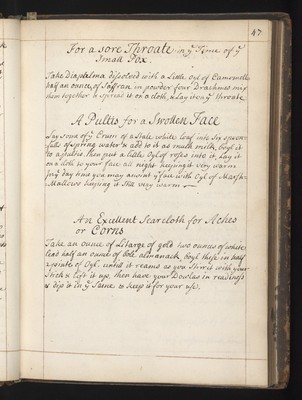 47
For a sore Throate in yͤ Time of yͤ
Small Pox.
Take Diapalma disolved with a Little oyl of Camomell
half an ounce, of Saffran in powder four Drachms mix
them together & spread it on a cloth, & Lay it on yͤ throate
A Pultis for a Swollen Face
Lay some of yͤ Crum of a Stale white loaf into six spoon
fulls of spring water & add to it as much milk, boyl it
to a pultis then put a little Oyl of roses into it, Lay it
on a cloth to your face all night keeping it very warm
in yͤ day time you may anoint yͤ face with Oyl of Marsh
Mallows keeping it still very warm
An Excellent Searcloth for Aches
or Corns
Take an ounce of Litarge of gold two ounces of white
lead half an ounce of bole almanack boyl these in half
a pinte of Oyl, until it reams as you Stir it with your
Stick & lift it up, then have your Dowlas in readiness
& dip it in yͤ Same & keep it for your use.